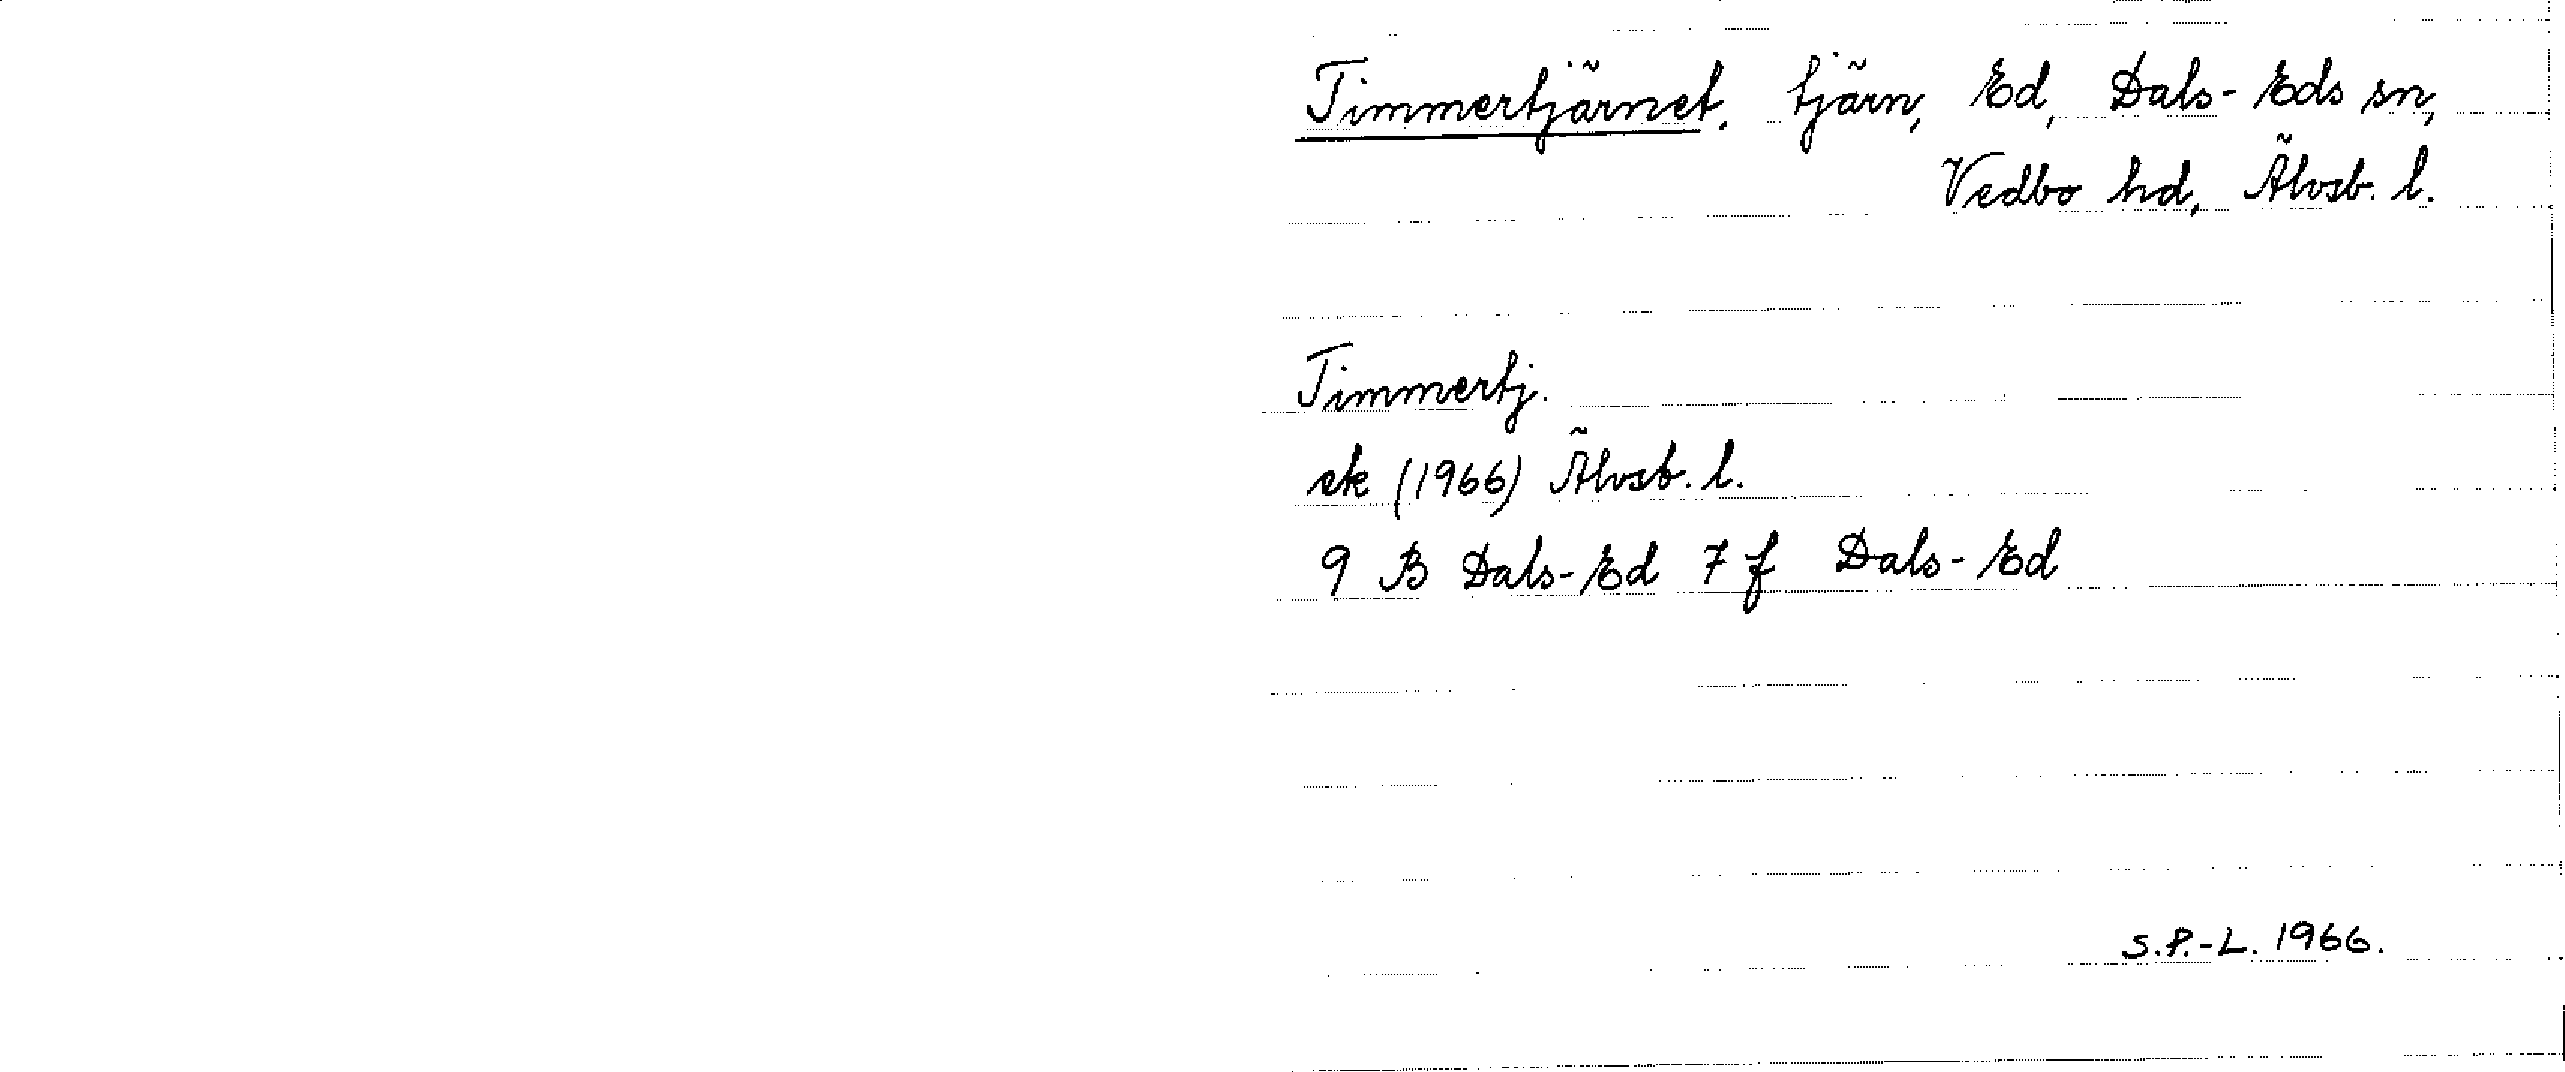 Timmertjärnet, tjärn, Ed, Dals-Eds sn,
Vedbo hd, Älvsb. l.
Timmertj.
ek (1966) Älvsb. l.
9 B Dals-Ed 7 f Dals-Ed
S.P.-L. 1966.